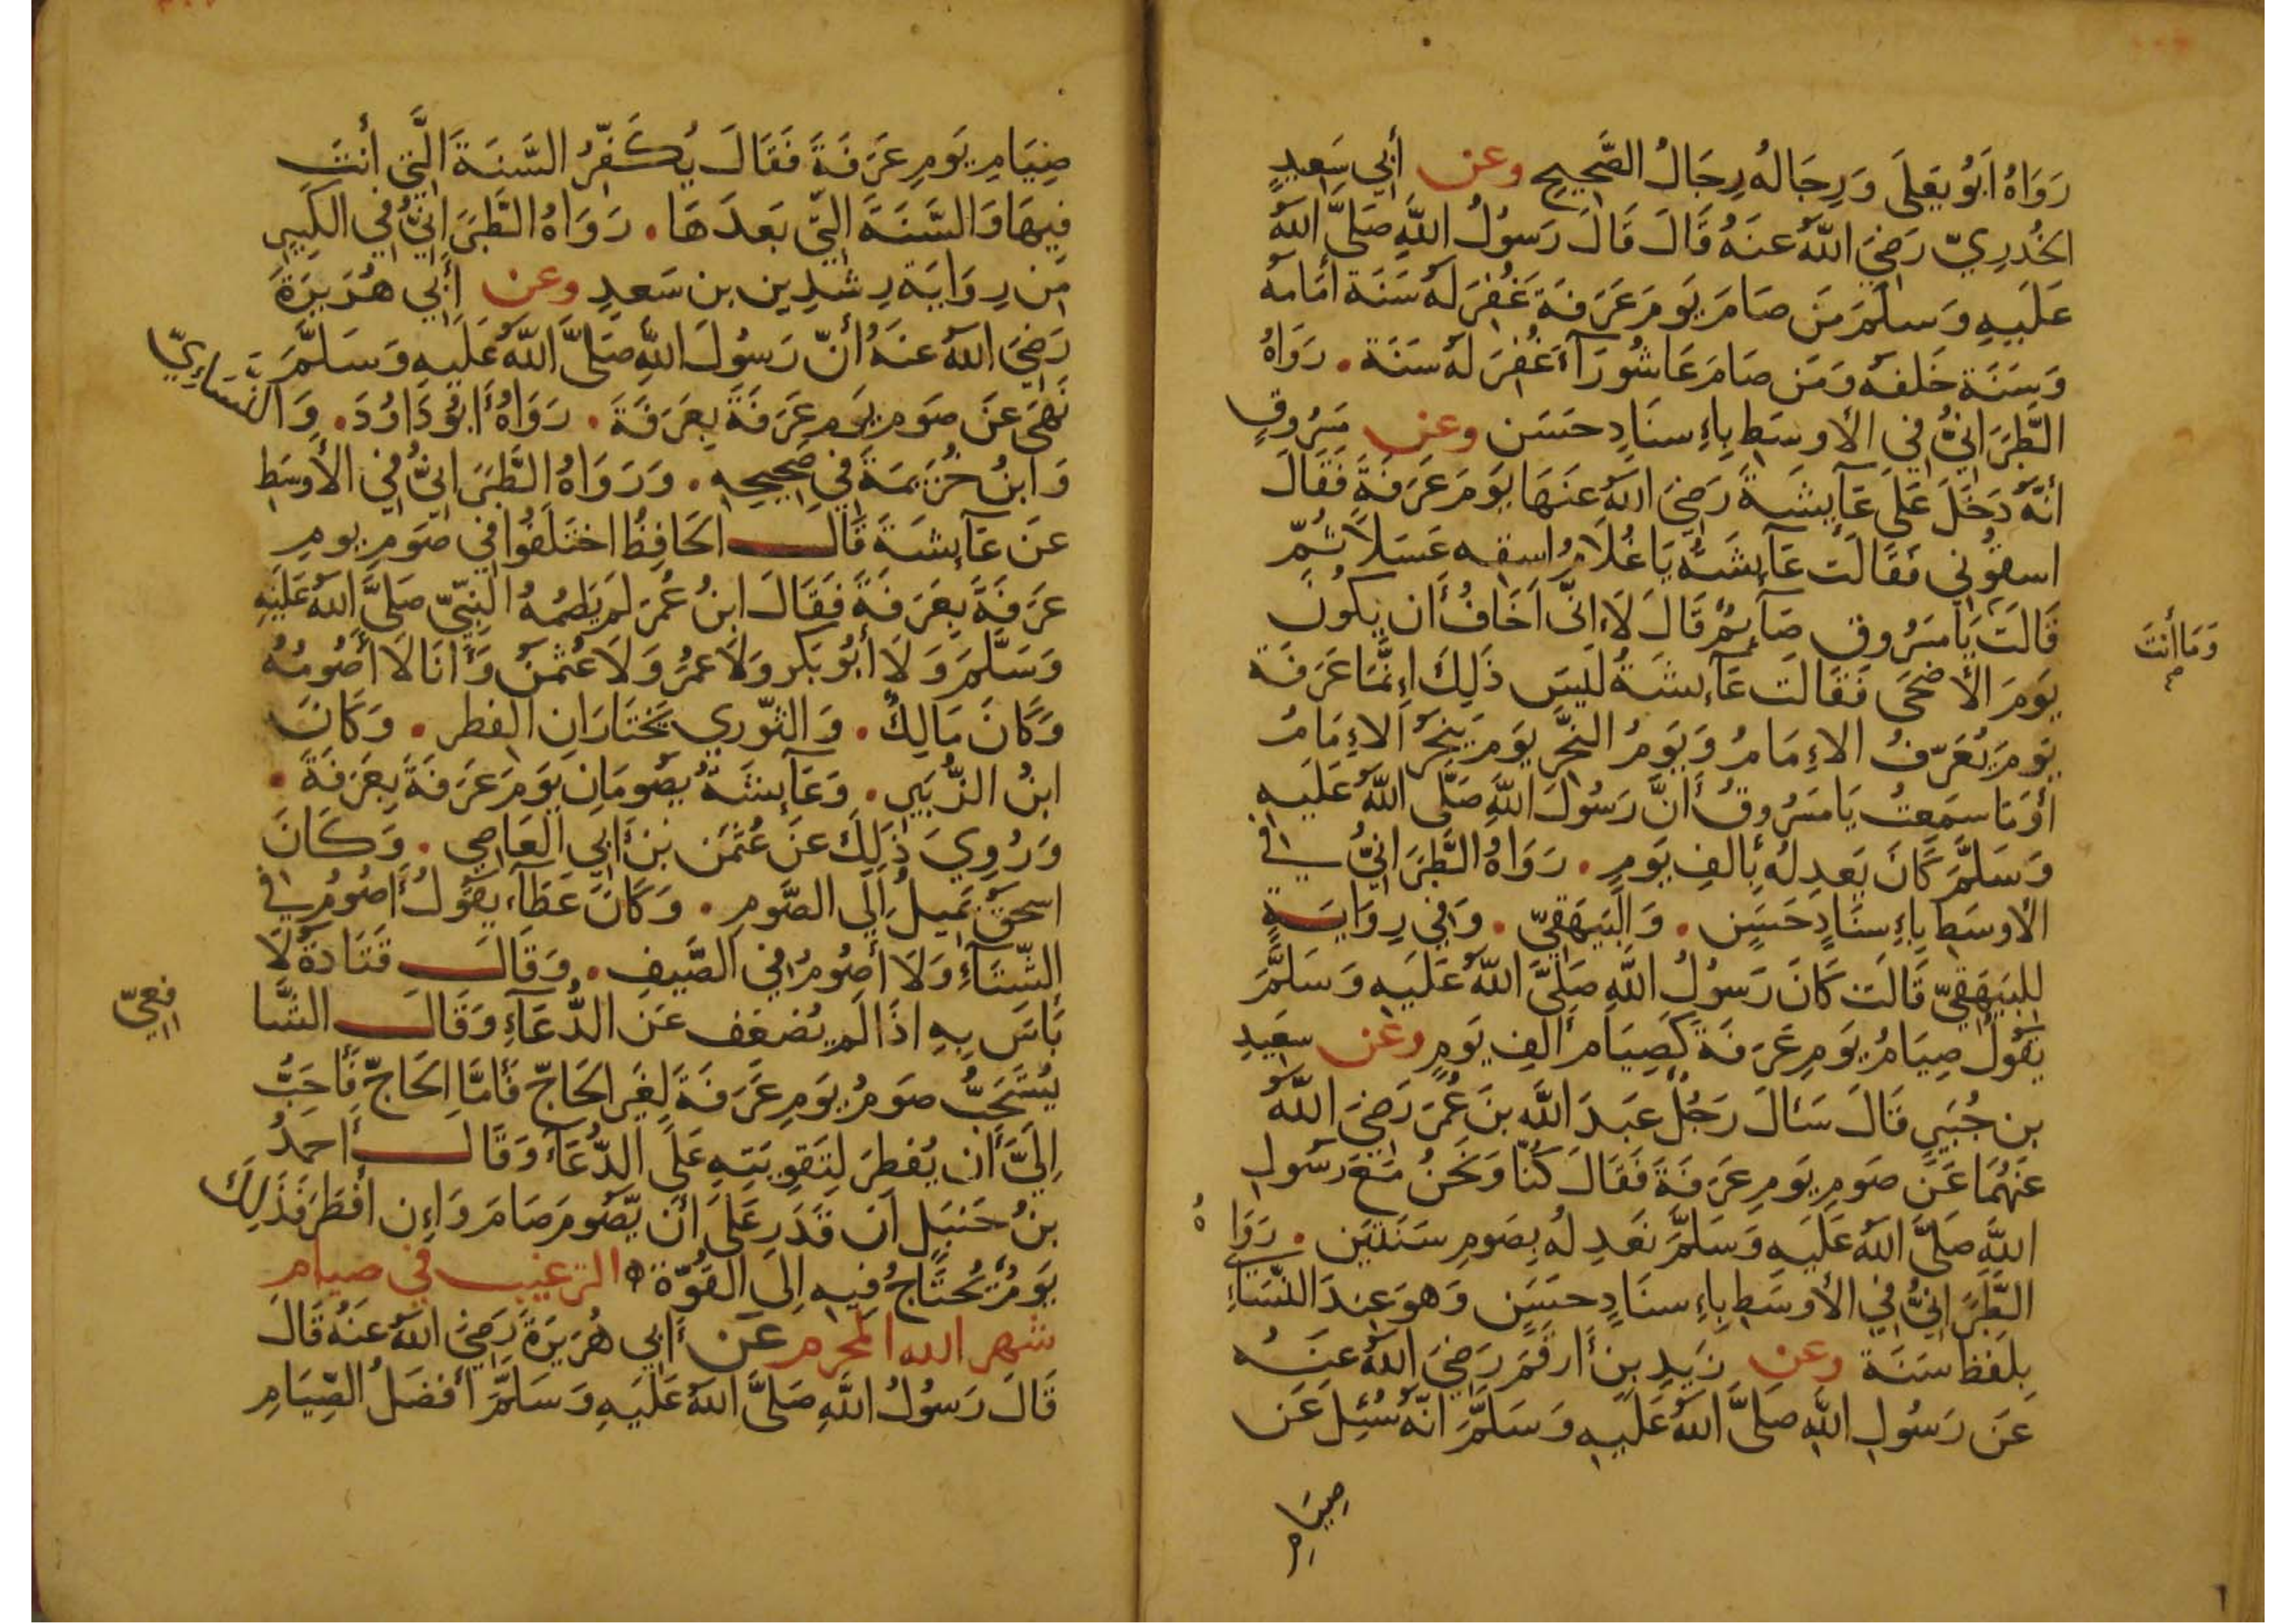 رَوَاهُ اَبُو يَعلَى وَرِجَالهُ رِجَالُ الصَّحِيحِ وعن أَبِي سَعِيدٍ
الخُدرِيّ رَضِيَ اللَّهُ عنَهُ قَالَ قَالَ رَسُولُ اللَّهِ صَلَّى اللَّهُ
عَلَيهِ وَسَلَّمَ مَن صَامَ يَومَ عَرَفَةَ غُفِرَ لَهُ سَنَة أَمَامَهُ
وَسَنَة خَلفَهُ وَمَن صَامَ عَاشُورَآءَ غُفِرَ لَهُ سَنَة . رَوَاهُ
الطَّبَرَانِيُّ فِي الأَوسَطِ بِإِسنَادٍ حَسَن وعن مَسرُوقٍ
أنَّهُ دَخَلَ عَلَى عَآيِشَةَ رَضِيَ اللهُ عَنهَا يَومَ عَرَفَةَ فَقَالَ
اسقُونِي فَقَالَت عَآيِشَةُ يَا غُلَامُ اسقِهِ عَسَلًا ثُمَّ
قَالَت يَا مَسرُوق صَآيِمٌ قَالَ لَا اِنِّي اَخَافُ أَن يَكُونَ
وَمَا أَنتَ
يَومَ الأَضحَى فَقَالَت عَآيِشَةُ لَيسَ ذَلِكَ إِنَّمَا عَرَفَة
يَومَ يُعَرِّفُ الإِمَامُ وَيَومُ النَّحرِ يَومَ يَنحَرُ الإِمَامُ
أَوَمَا سَمِعتُ يَا مَسرُوقُ أَنَّ رَسُولَ اللَّهِ صَلَّى اللَّهُ عَلَيهِ
وَسَلَّمَ كَانَ يَعدِلُهُ بِأَلفِ يَومٍ . رَوَاهُ الطَّبَرَانِيُّ فِي
الأَوسَطِ بِإِسنَادٍ حَسَنٍ . وَالبَيهَقِيّ . وَفِي رِوَايَةٍ
لِلبَيهَقِيّ قَالَت كَانَ رَسُولُ اللَّهِ صَلَّى اللَّهُ عَلَيهِ وَسَلَّمَ
يَقُولُ صِيَامُ يَومِ عَرَفَةَ كَصِيَامِ أَلفِ يَومٍ وعن سَعِيدِ
بن جُبَيرٍ قَالَ سَأَلَ رَجُلٌ عَبدَ اللَّهِ بنَ عُمَرَ رَضِيَ اللَّهُ
عَنهُمَا عَن صَومِ يَومِ عَرَفَةَ فَقَالَ كُنَّا وَنَحنُ مَعَ رَسُولِ
اللَّهِ صَلَّى اللَّهُ عَلَيهِ وَسَلَّمَ نَعدِلُهُ بِصَومِ سَنَتَين . رَوَاهُ
الطَّبَرَانِيُّ فِي الأَوسَطِ بِإِسنَادٍ حَسَنٍ وَهوَ عِندَ النَّسَاءِي
بِلَفظِ سَنَة وعن زَيدِ بنِ أَرقَمَ رَضِيَ اللَّهُ عَنهُ
عَن رَسُولِ اللَّهِ صَلَّى اللَّهُ عَلَيهِ وَسَلَّمَ اَنَّهُ سُئِلَ عَن
صِيَامِ
صِيَامِ يَومِ عَرَفَةَ فَقَالَ يُكَفِّرُ السَّنَةَ الَّتِي أَنتَ
فِيهَا وَالسَّنَةَ الَّتِي بَعدَهَا . رَوَاهُ الطَّبَرَانِيُّ فِي الكَبِيرِ
مِن رِوَايَة رِشدِينِ بن سَعدٍ وعن أَبِي هُرَيرَةَ
رَضِيَ اللهُ عَنهُ أَنَّ رَسُولَ اللَّهِ صَلَّى اللَّهُ عَلَيهِ وَسَلَّمَ
نَهَى عَن صَومِ يَومِ عَرَفَةَ بِعَرَفَةَ . رَوَاهُ أَبُو دَاوُدَ . وَالنَّسَاءِيّ
وَابنُ خُزَيمَةَ فِي صَحِيحِهِ . وَرَوَاهُ الطَّبَرَانِيُّ فِي الأَوسَطِ
عَن عَآيِشَةَ قَالَ الحَافِظُ اختَلَفُوا فِي صَومِ يومِ
عَرَفَةَ بِعَرَفَةَ فَقَالَ ابنُ عُمَرَ لَم يَصُمهُ النَّبِيّ صَلَّى اللَّهُ عَلَيهِ
وَسَلَّمَ وَلَا أَبُو بَكرٍ وَلَا عُمَرُ وَلَا عُثمنُ وَأَنَا لَا أَصُومُهُ
وَكَانَ مَالِكٌ . وَالثَّورِي يَختَارَانِ الفِطر . وَكَانَ
ابنُ الزُّبَيرِ . وَعَآيِشَةُ يَصُومَانِ يَومَ عَرَفَةَ بِعَرَفَةَ .
وَرُوِيَ ذَلِكَ عَن عُثمَن بنِ أَبِي العَاصِي . وَكَانَ
اسحقُ يَمِيلُ اَلِي الصَّومِ . وَكَانَ عَطَآء يَقُولُ أَصُومُ فِي
الشِّتَآءِ وَلَا أَصُومُ فِي الصَّيفِ . وَقَالَ قَتَادَةُ لَا
بَاسَ بِهِ اذَا لَم يُضعِف عَنِ الدُّعَآءِ وَقَالَ الشَّا
فعِيّ
يُستَحَبُّ صَومُ يَومِ عَرَفَةَ لِغَيرِ الحَاجّ فَأَمَّا الحَاجّ فَأَحَبُّ
اِلَيَّ أَن يُفطِرَ لِتَقوِيَتِهِ عَلَى الدُّعَآءِ وَقَالَ أَحمَدُ
بنُ حَنبَلٍ اَن قَدَرِ عَلَى أَن يَّصُومَ صَامَ وَإِن أَفطَرَ فَذَلِكَ
يَومٌ يُحتَاجُ فِيهِ اِلَى القُوَّة الترغيب في صيام
شهر الله المحرم عَن أَبِي هُرَيرَةَ رَضِيَ اللهُ عَنهُ قَالَ
قَالَ رَسُولُ اللَّهِ صَلَّى اللَّهُ عَلَيهِ وَسَلَّمَ أَفضَلُ الصِّيَامِ